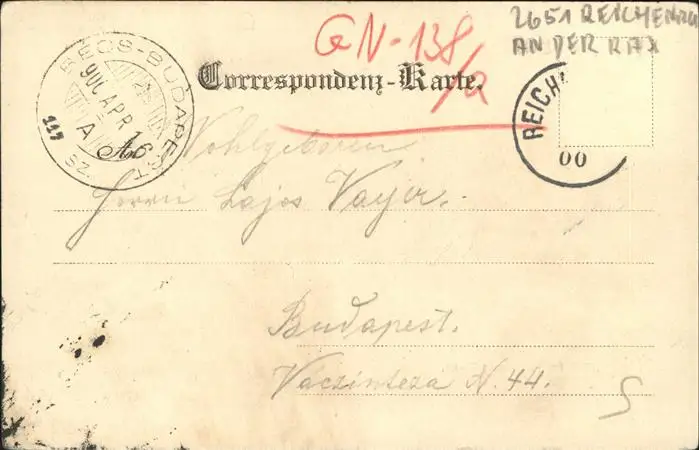 GN-138/a
2651 REICHENAU
AN DER RAX
BECS-BUDAPEST
900 APR 16
A
117 SZ.
Correspondenz-Karte.
REICH
00
Wohlgeboren
Herrn Lajos Vayer.
Budapest.
Váczinteza N. 44.